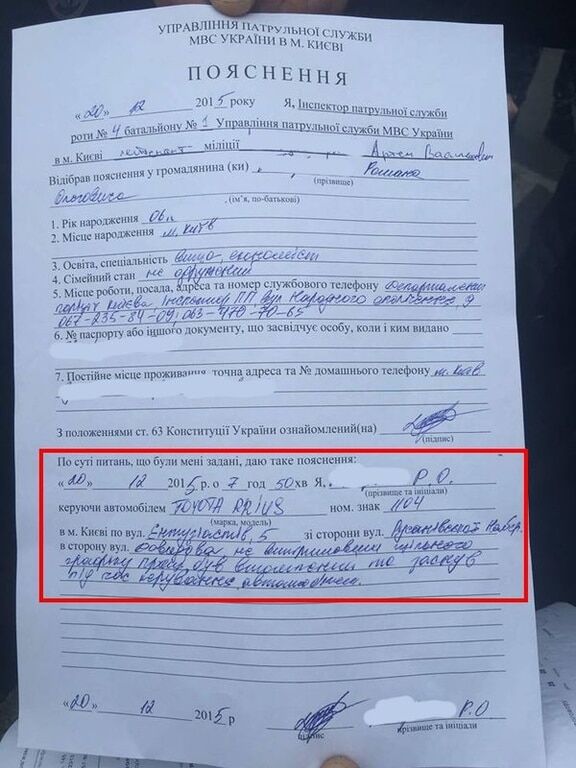 УПРАВЛІННЯ ПАТРУЛЬНОЇ СЛУЖБИ
МВС УКРАЇНИ В М. КИЄВІ
ПОЯСНЕННЯ
«20» 12 2015 року Я, Інспектор патрульної служби
роти № 4 батальйону № 1 Управління патрульної служби МВС України
в м. Києві лейтенант міліції Артем
Відібрав пояснення у громадянина (ки) Романа
(прізвище)
(ім’я, по-батькові)
1. Рік народження
2. Місце народження м. Київ
3. Освіта, спеціальність вища, економіст
4. Сімейний стан не одружений
5. Місце роботи, посада, адреса та номер службового телефону Департамент
поліції Києва Інспектор ПП вул Народного ополчення, 9
067-235-84-09; 063-479-70-65
6. № паспорту або іншого документу, що засвідчує особу, коли і ким видано
7. Постійне місце проживання, точна адреса та № домашнього телефону м. Київ
З положеннями ст. 63 Конституції України ознайомлений(на)
(підпис)
По суті питань, що були мені задані, даю таке пояснення:
«20» 12 2015 р. о 7 год 50 хв Я, Р.О.
(прізвище та ініціали)
керуючи автомобілем TOYOTA PRIUS ном. знак 1104
(марка, модель)
в м. Києві по вул. Ентузіастів, 5 зі сторони вул. Русанівской Набер.
в сторону вул. не витримавши щільного
графіку праці був втомленний та заснув
під час керування автомобілем.
«20» 12 2015 р Р.О
підпис прізвище та ініціали